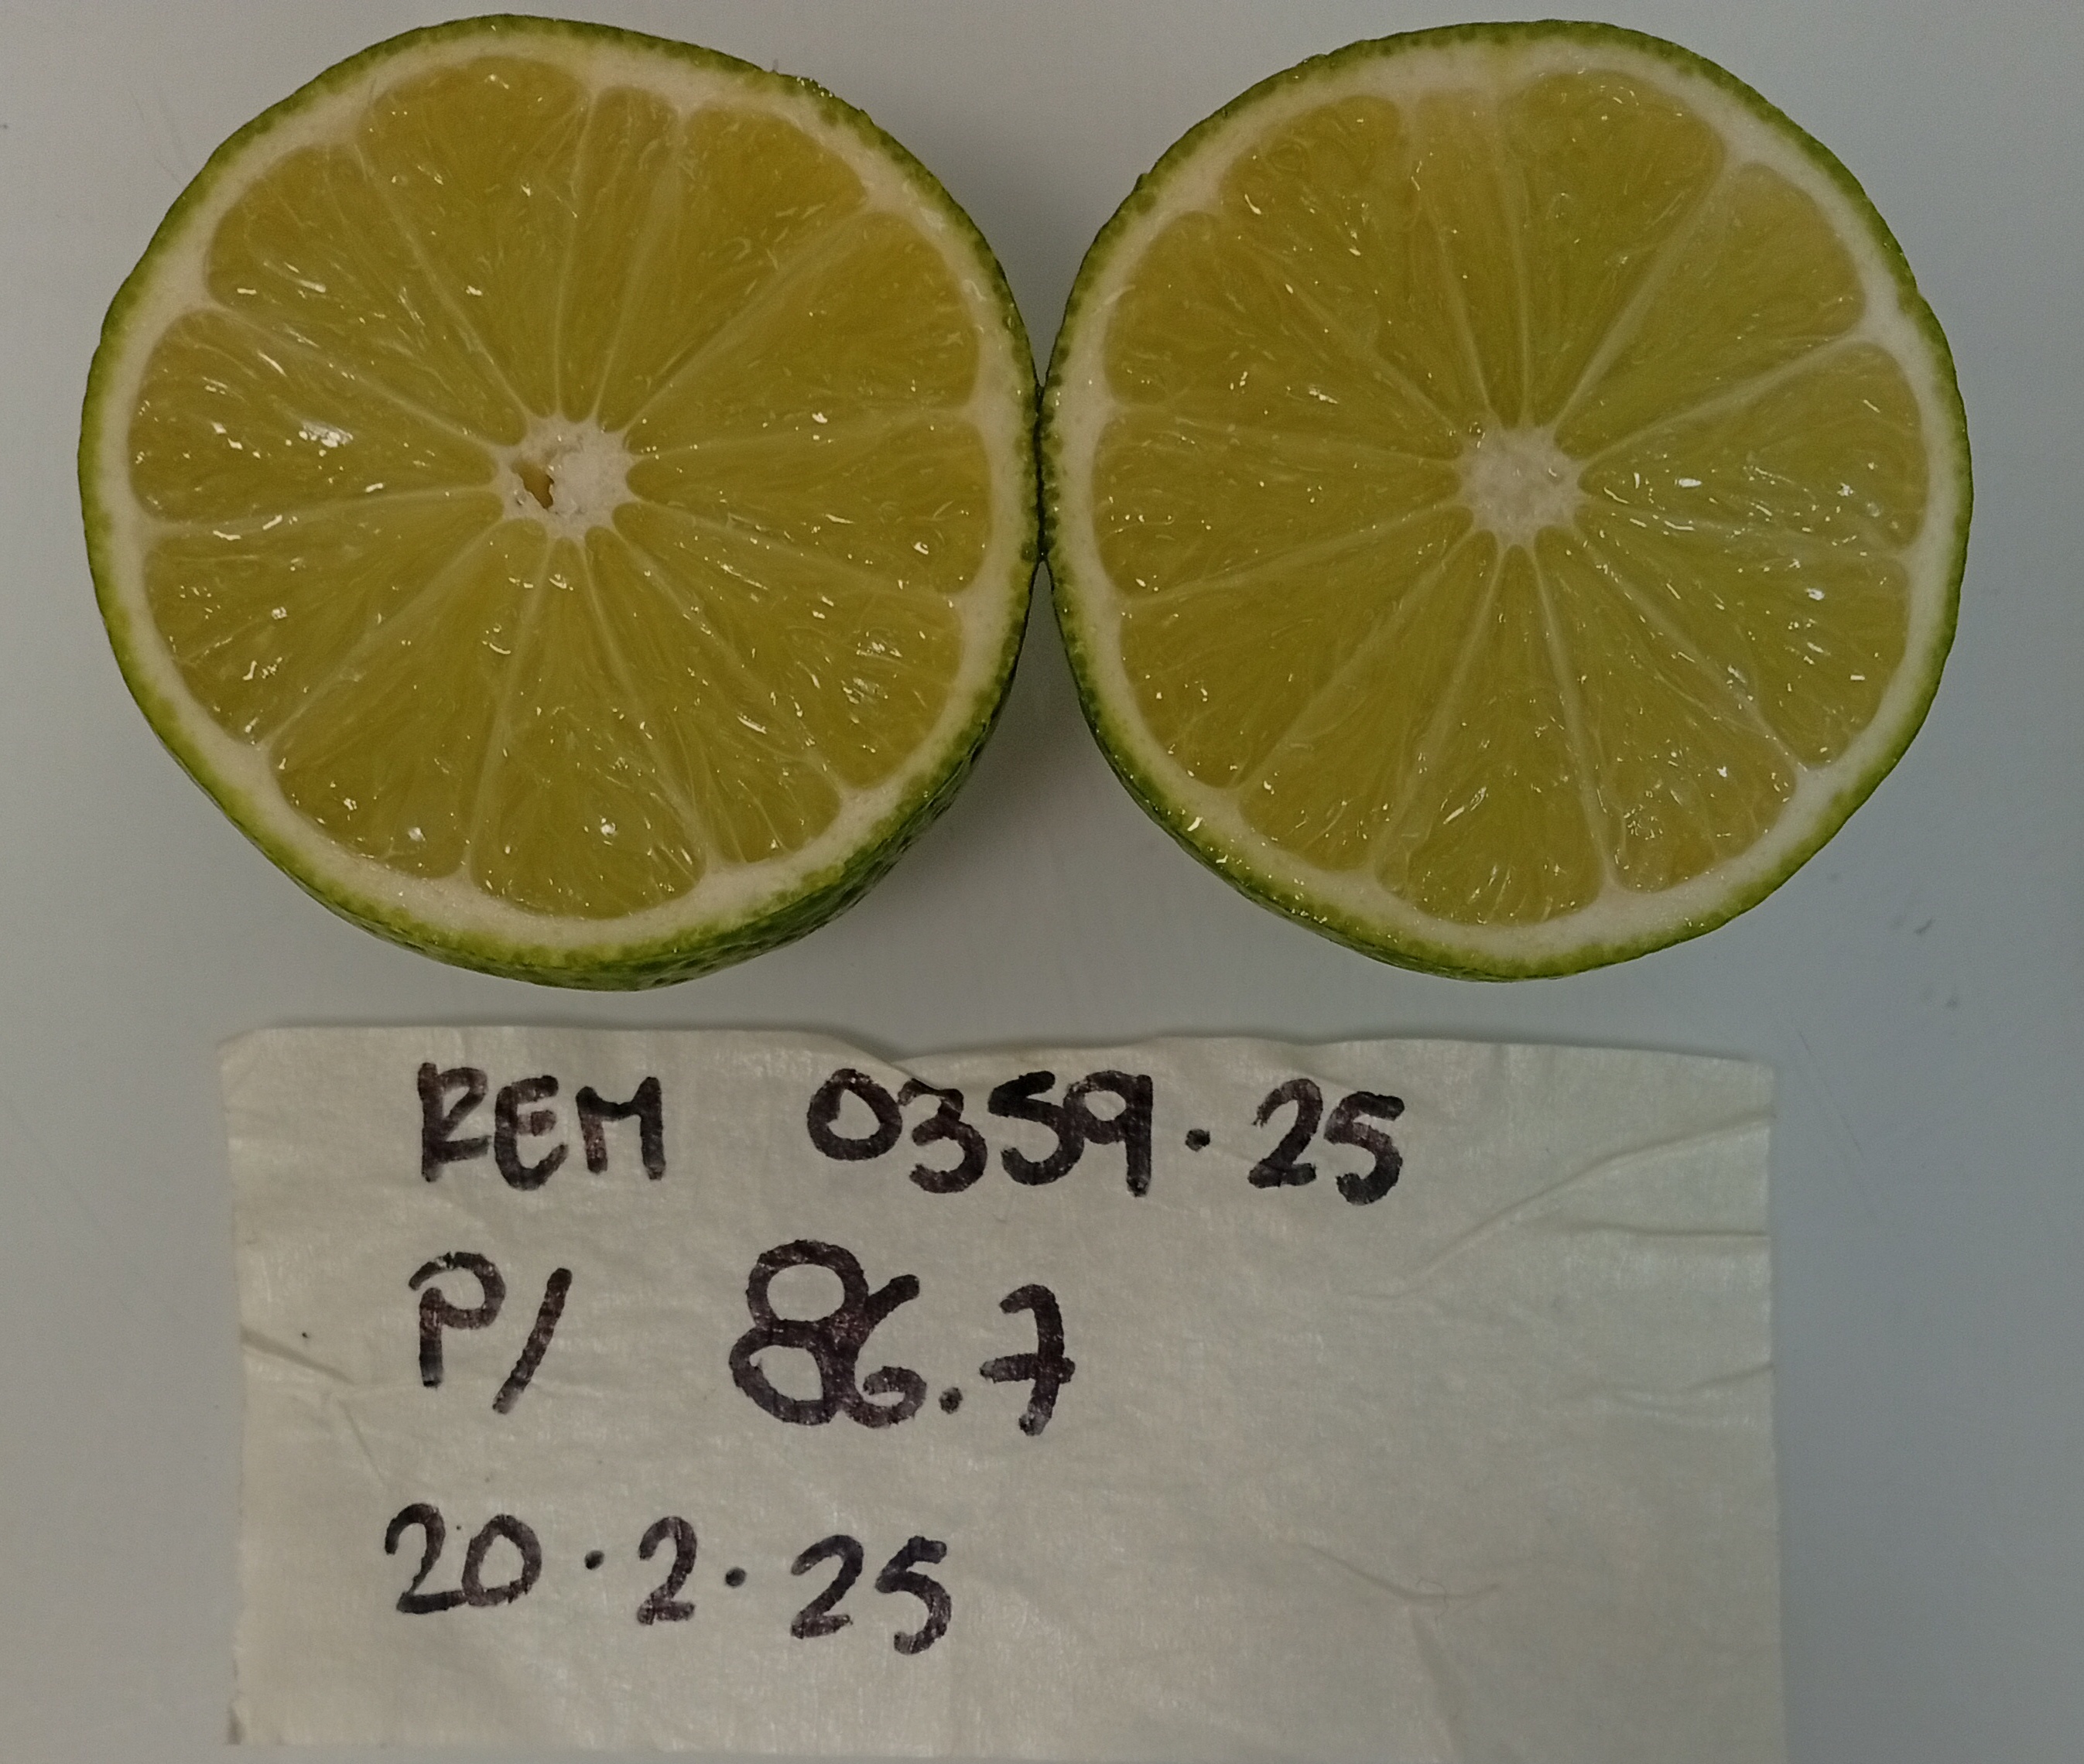 REM 0359.25
P/ 86.7
20.2.25